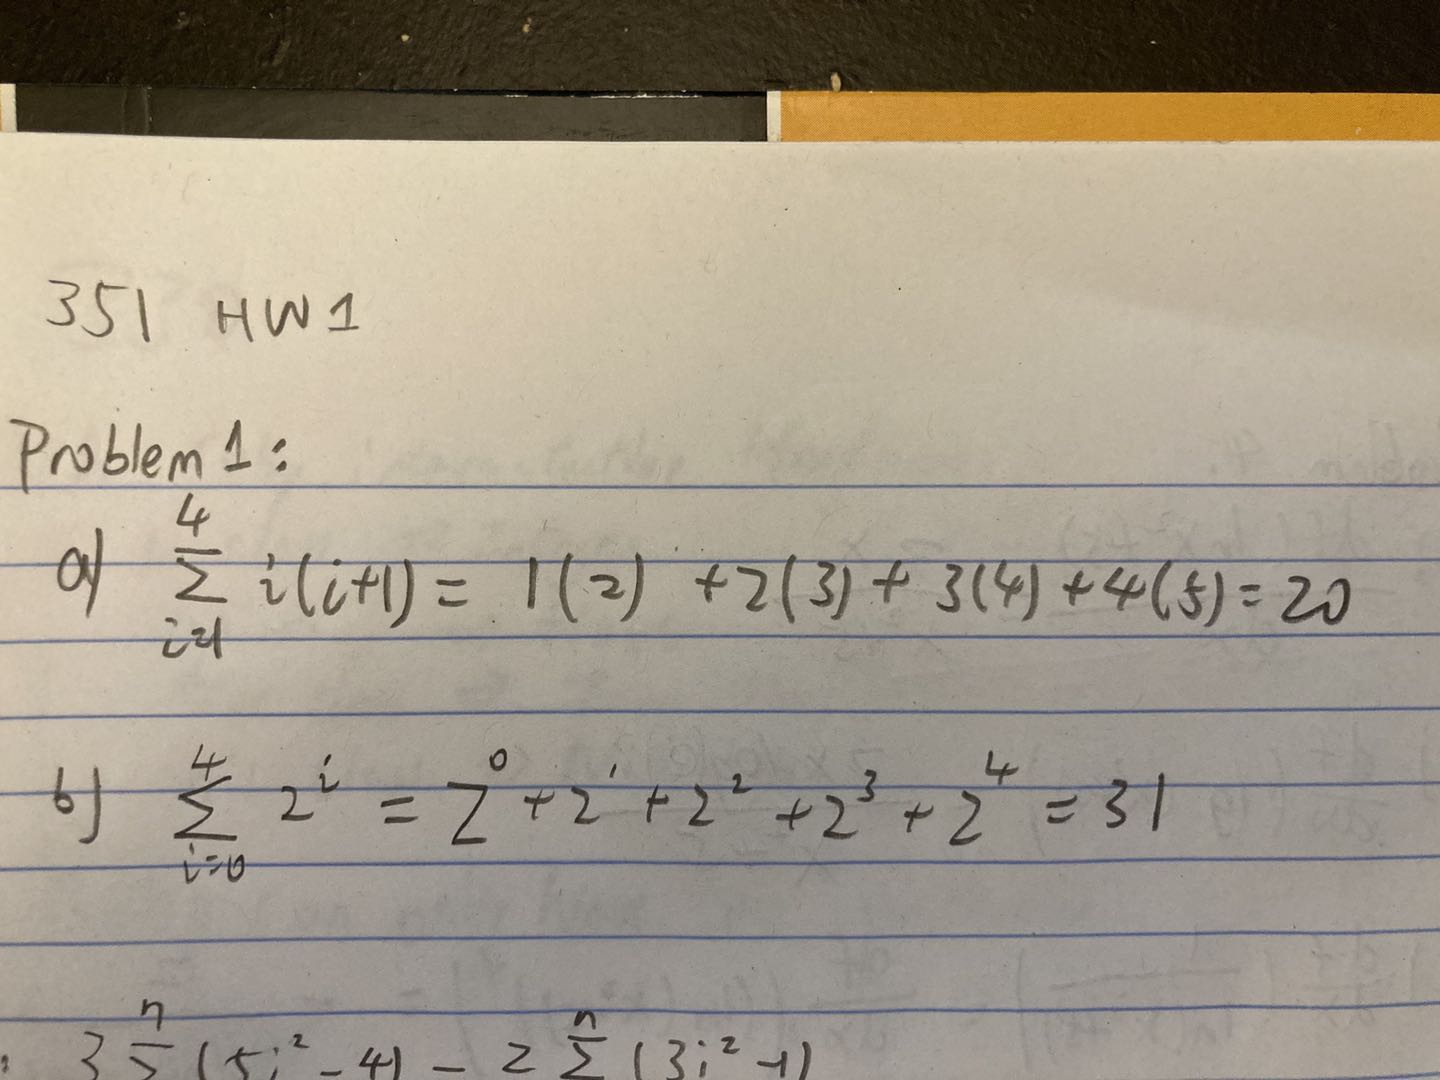 351 HW1
Problem 1:
a) $\sum_{i=1}^{4} i(i+1) = 1(2) + 2(3) + 3(4) + 4(5) = 20$
b) $\sum_{i=0}^{4} 2^i = 2^0 + 2^1 + 2^2 + 2^3 + 2^4 = 31$
$3 \sum^{n} (5i^2 - 4) - 2 \sum^{n} (3i^2 - 1)$